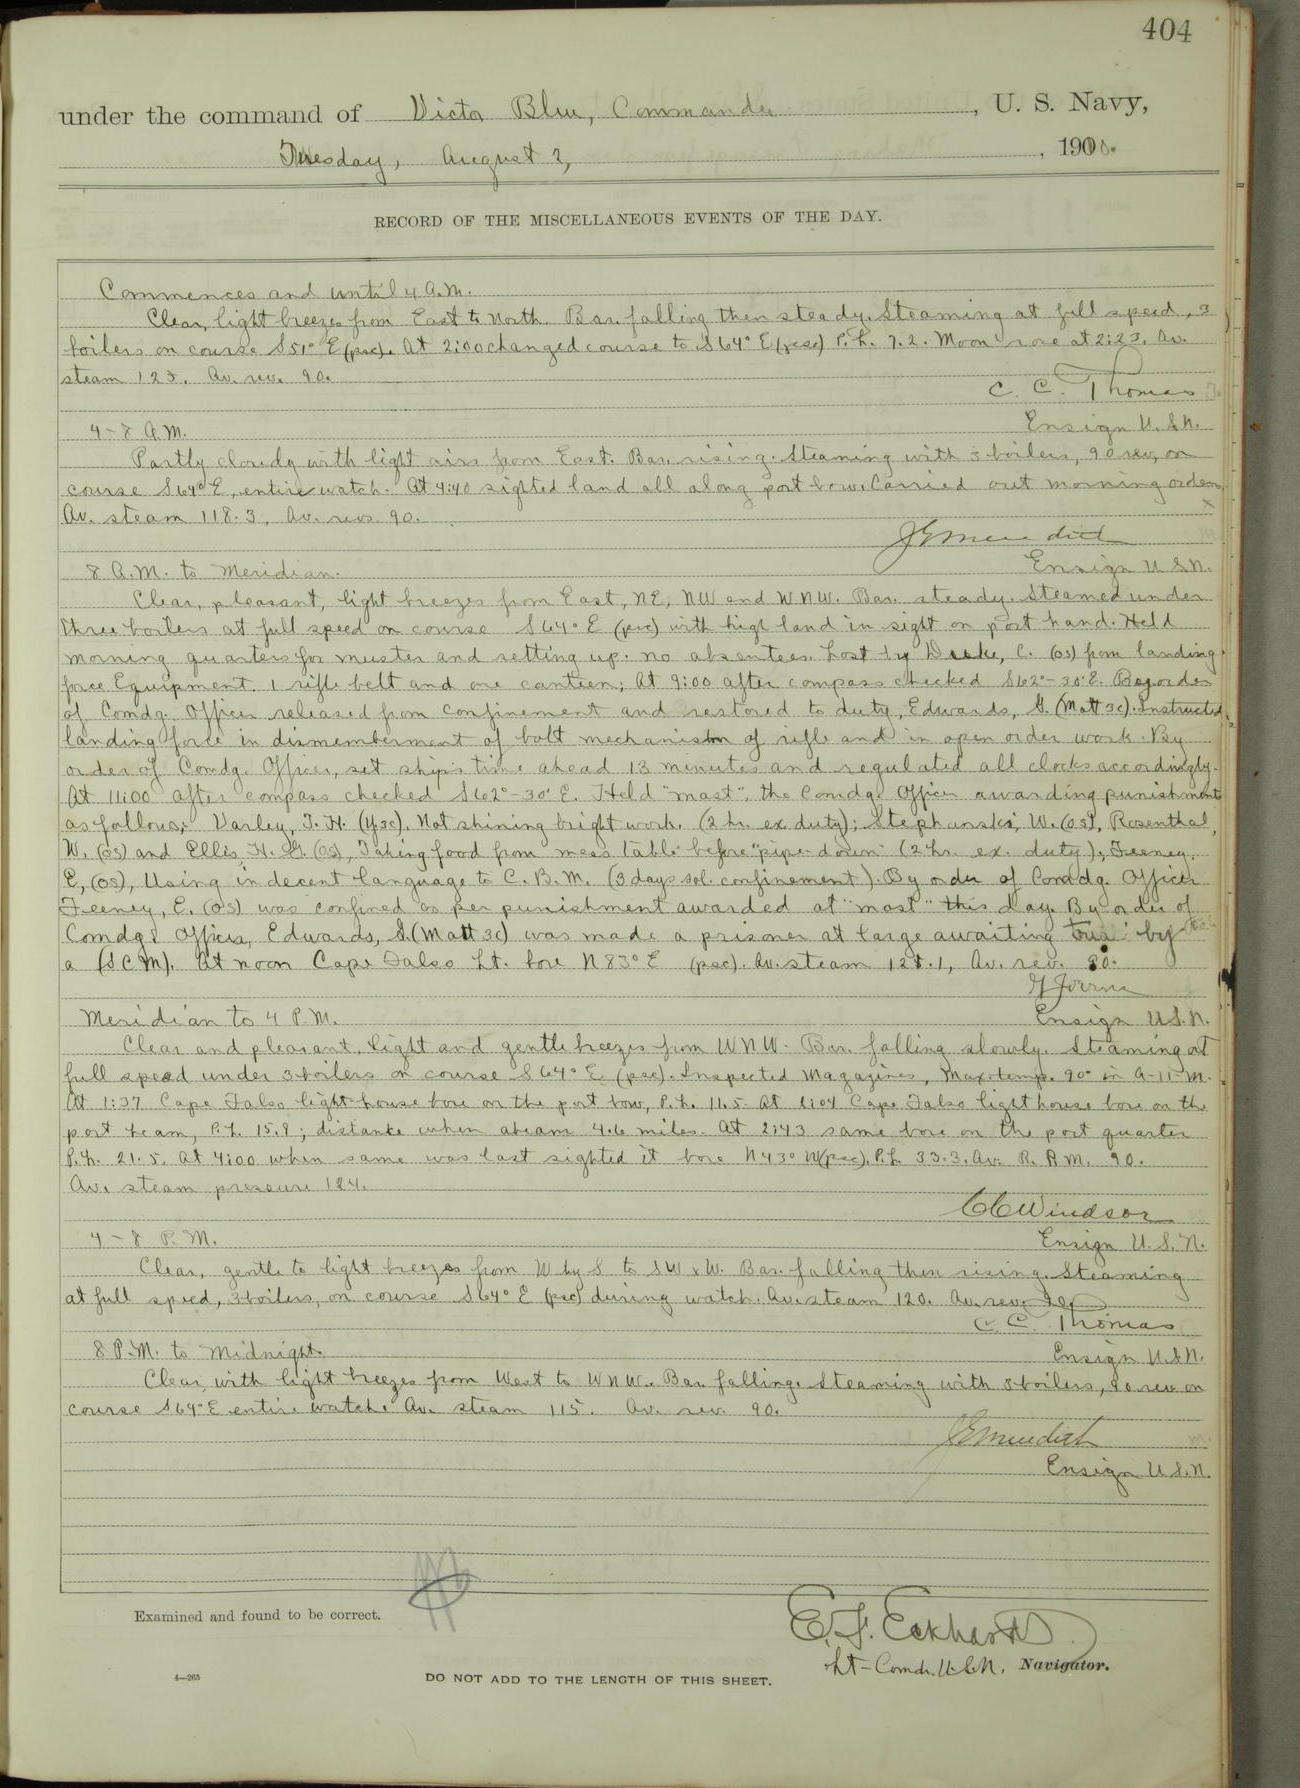 404
under the command of Victor Blue, Commander, U. S. Navy,
Tuesday, August 2, 1910.
RECORD OF THE MISCELLANEOUS EVENTS OF THE DAY.
Commences and until 4 A.M.
Clear, light breezes from East to North. Bar. falling then steady. Steaming at full speed, 3
boilers on course S 51° E (psc). At 2:00 changed course to S 64° E (psc) P.L. 7.2. Moon rose at 2:23. Av.
steam 125. Av. rev. 90.
C. C. Thomas
Ensign U.S.N.
4-8 A.M.
Partly cloudy with light airs from East. Bar. rising. Steaming with 3 boilers, 90 rev, on
course S 64° E, entire watch. At 4:40 sighted land all along port bow. Carried out morning orders.
Av. steam 118.3, Av. revs. 90.
J E Meredith
Ensign U.S.N.
8 A.M. to Meridian.
Clear, pleasant, light breezes from East, NE, NW and WNW. Bar. steady. Steamed under
three boilers at full speed on course S 64° E (psc) with high land in sight on port hand. Held
morning quarters for muster and setting up. no absentees. Lost by C. (OS) from landing
force Equipment. 1 rifle belt and one canteen; At 9:00 after compass checked S 62°-30' E. By order
of Comdg. Officer released from confinement and restored to duty, Edwards, G. (Matt 3c). Instructed
landing force in dismemberment of bolt mechanism of rifle and in open order work. By
order of Comdg. Officer, set ship's time ahead 13 minutes and regulated all clocks accordingly.
At 11:00 after compass checked S 62°-30' E. Held "mast", the Comdg. Officer awarding punishments
as follows; Varley, T. H. (Y3c), Not shining bright work. (2 hr. ex. duty); Stephanski, W. (OS), Rosenthal,
W. (OS) and Ellis, H. G. (OS), Taking food from mess table before "pipe down" (2 hr. ex. duty); Feeney,
E, (OS), Using indecent language to C. B. M. (3 days sol. confinement). By order of Comdg. Officer
Feeney, E. (OS) was confined as per punishment awarded at "mast" this day. By order of
Comdg. Officer, Edwards, G. (Matt 3c) was made a prisoner at large awaiting trial by
a (SCM). At noon Cape Falso Lt. bore N 83° E (psc). Av. steam 125.1, Av. rev. 90.
Ensign U.S.N.
Meridian to 4 P.M.
Clear and pleasant. Light and gentle breezes from WNW. Bar. falling slowly. Steaming at
full speed under 3 boilers on course S 64° E (psc). Inspected Magazines, Max. temp. 90° in A-11-M.
At 1:37 Cape Falso light-house bore on the port bow, P.L. 11.5. At Cape Falso lighthouse bore on the
port beam, P.L. 15.8; distance when abeam 4.6 miles. At 2:43 same bore on the port quarter
P.L. 21.5. At 4:00 when same was last sighted it bore N 43° W (psc). P.L. 33.3. Av. R. P. M. 90.
Av. steam pressure 124.
C C Windsor
Ensign U.S.N.
4-8 P.M.
Clear, gentle to light breezes from W by S to SW x W. Bar. falling then rising. Steaming
at full speed, 3 boilers, on course S 64° E (psc) during watch. Av. steam 120. Av. rev. 90.
C. C. Thomas
Ensign U.S.N.
8 P.M. to Midnight.
Clear, with light breezes from West to WNW. Bar. falling. Steaming with 3 boilers, 90 rev. on
course S 64° E entire watch. Av. steam 115. Av. rev. 90.
J E Meredith
Ensign U.S.N.
Examined and found to be correct.
E. F. Eckhardt
Lt-Comdr. U.S.N. Navigator.
4—265
DO NOT ADD TO THE LENGTH OF THIS SHEET.